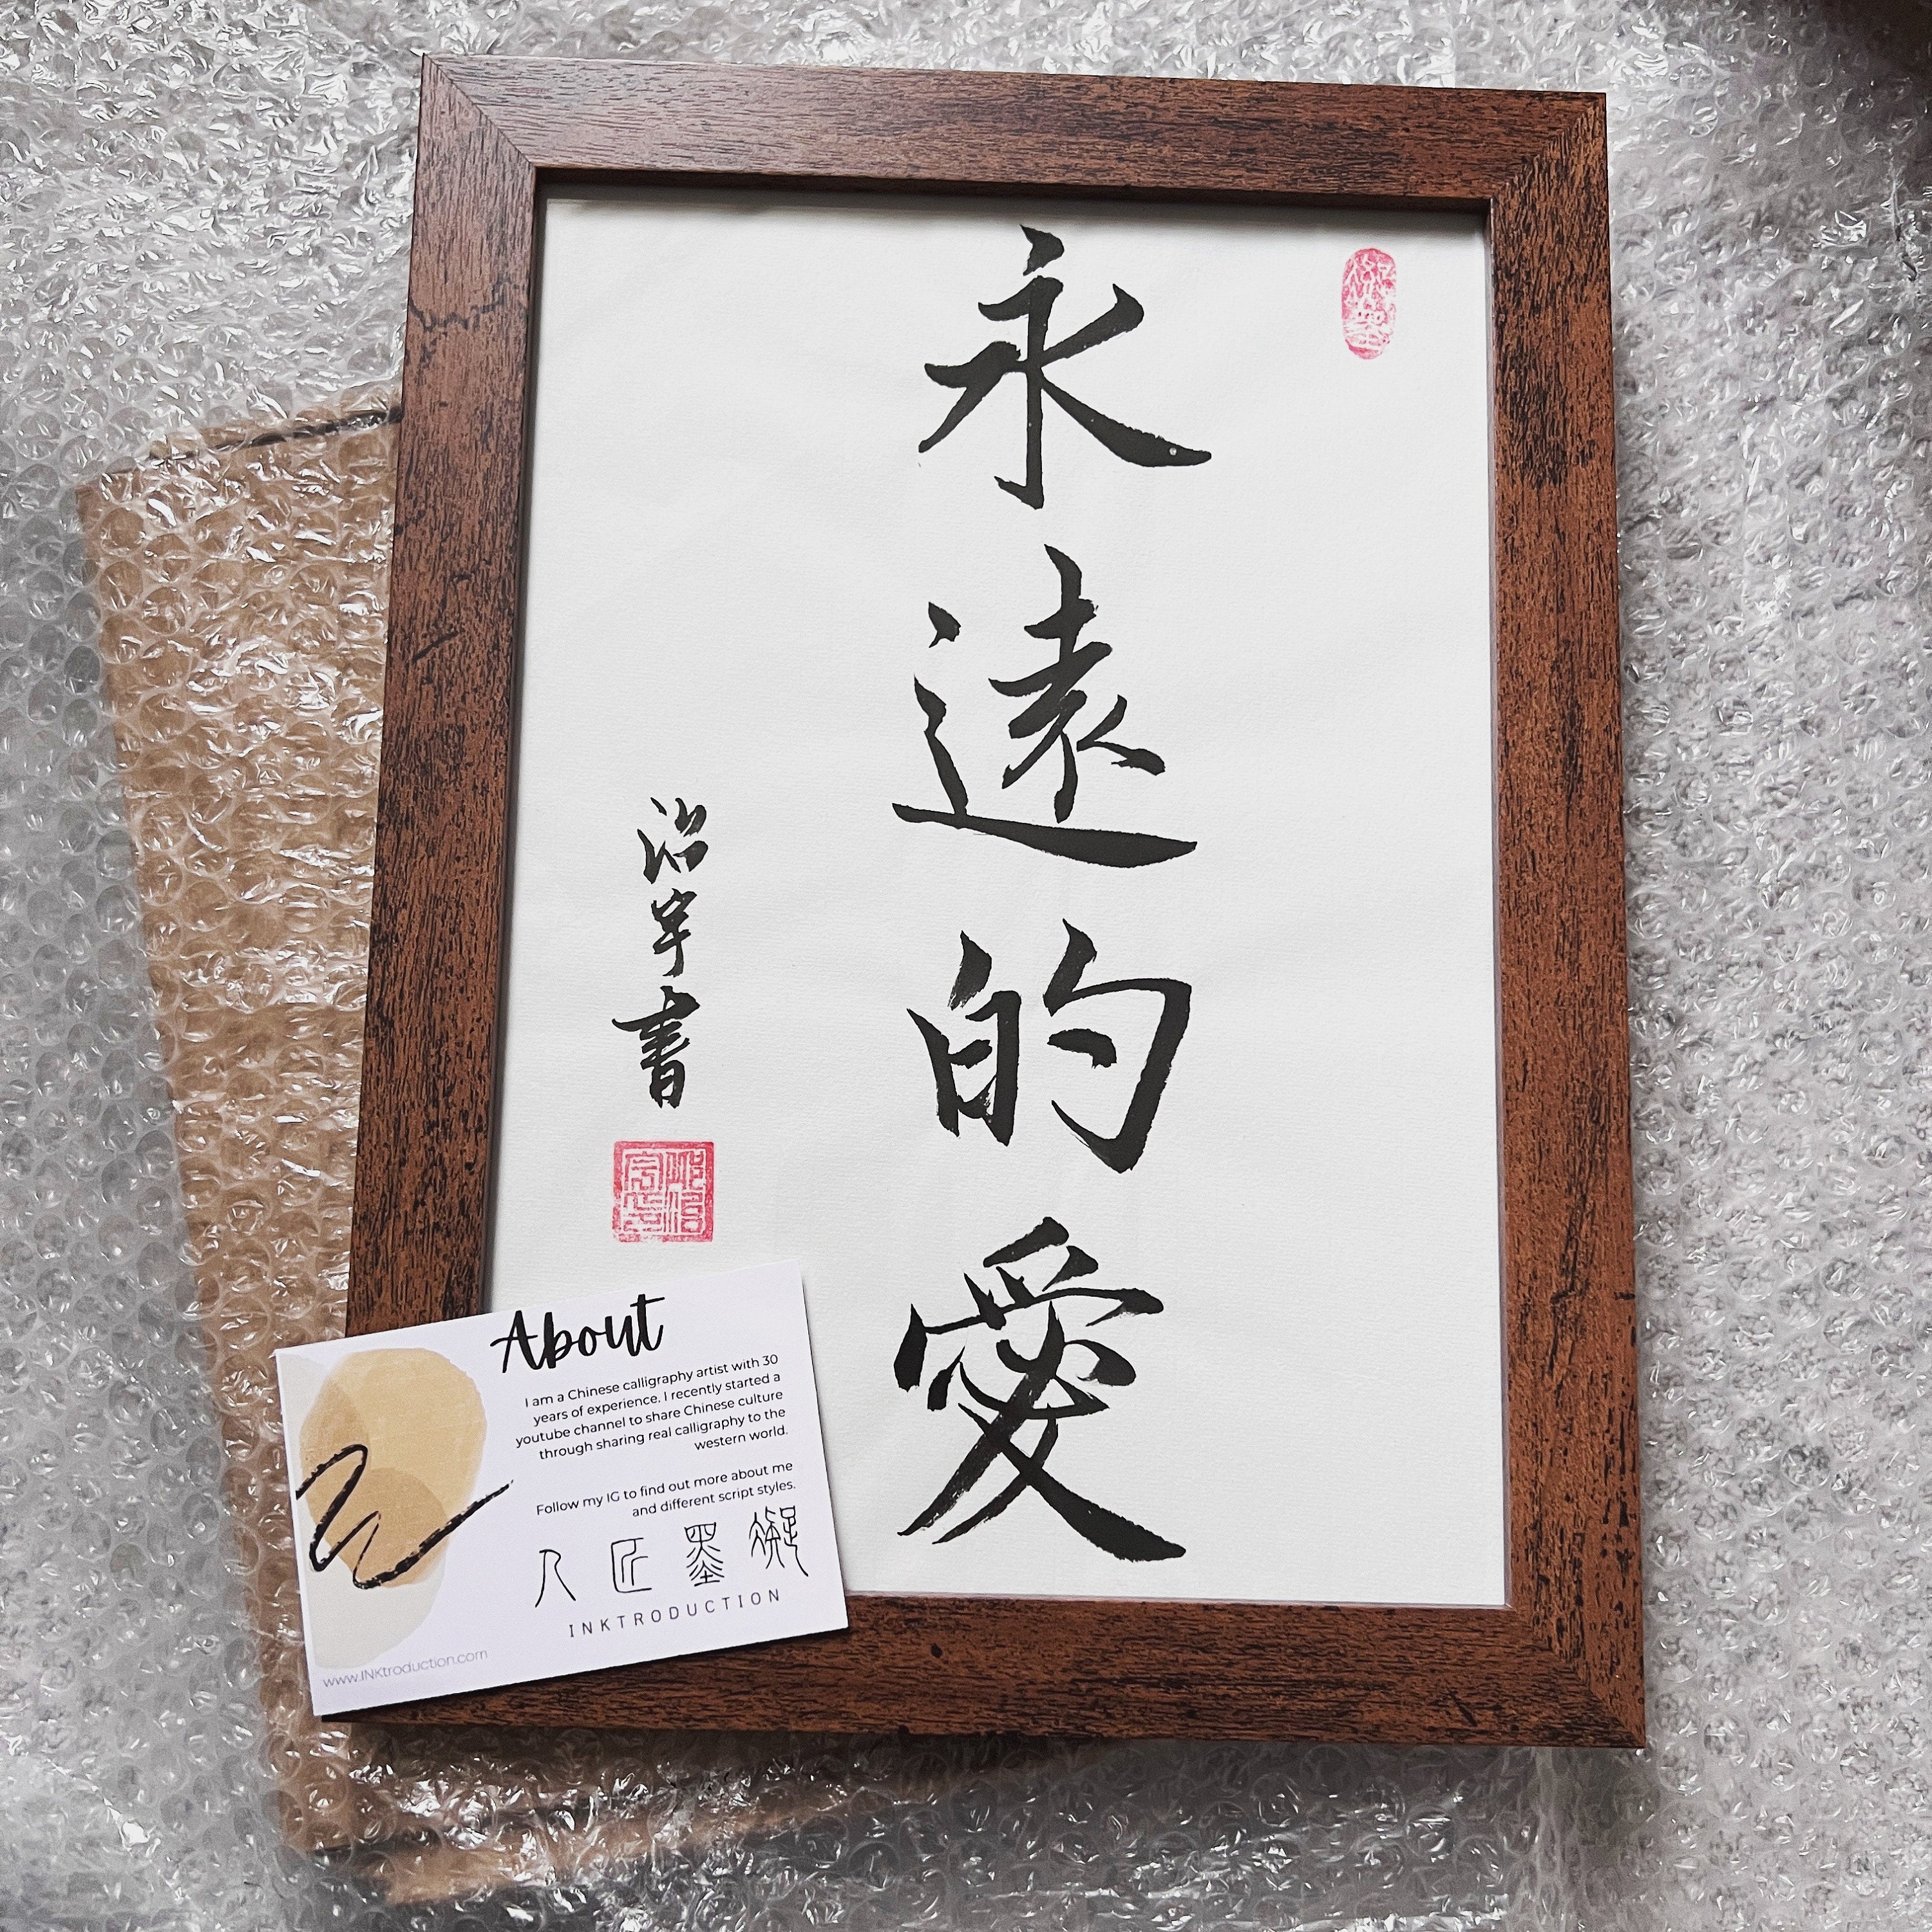 永遠的愛
治宇書
About
I am a Chinese calligraphy artist with 30
years of experience. I recently started a
youtube channel to share Chinese culture
through sharing real calligraphy to the
western world.
Follow my IG to find out more about me
and different script styles.
人匠墨凝
INKTRODUCTION
www.INKtroduction.com